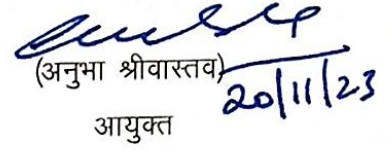 (अनुभा श्रीवास्तव)
20/11/23
आयुक्त